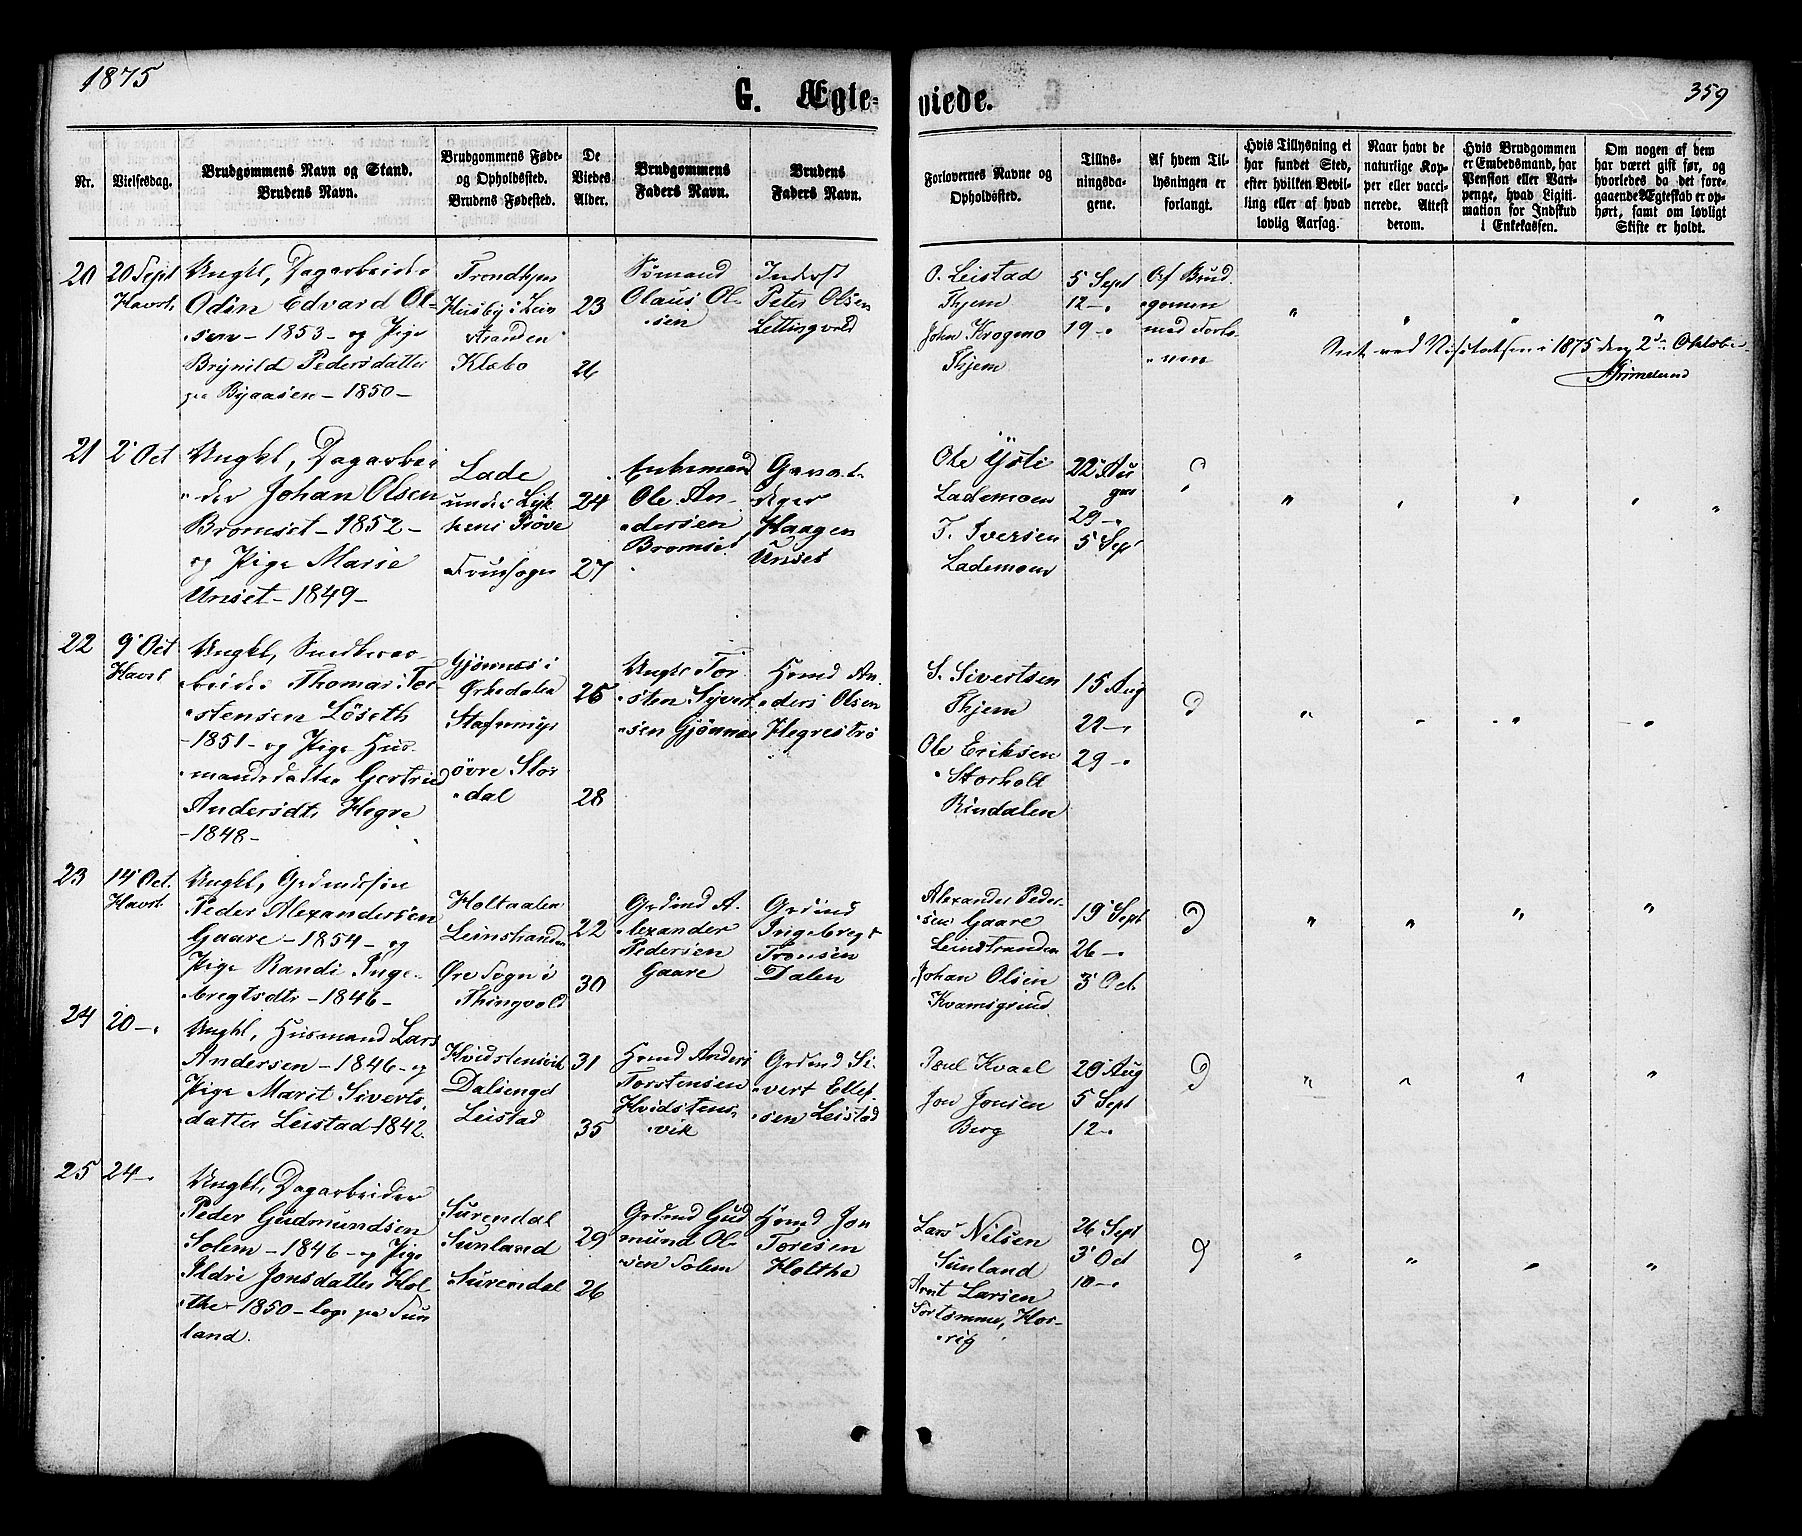 1875
359
G. Ægte-
viede.
Nr.
Vielsesdag.
Brudgommens Navn og Stand.
Brudens Navn.
Brudgommens Føde-
og Opholdssted.
Brudens Fødested.
De
Viedes
Alder.
Brudgommens
Faders Navn.
Brudens
Faders Navn.
Forlovernes Navne og
Opholdssted.
Tillys-
ningsda-
gene.
Af hvem Til-
lysningen er
forlangt.
Hvis Tillysning ei
har fundet Sted,
efter hvilken Bevil-
ling eller af hvad
lovlig Aarsag.
Naar havt de
naturlige Kop-
per eller vacci-
nerede. Attest
derom.
Hvis Brudgommen
er Embedsmand, har
Pension eller Vart-
penge, hvad Ligiti-
mation for Indskud
i Enkekassen.
Om nogen af dem
har været gift før, og
hvorledes da det fore-
gaaende Ægteskab er op-
hørt, samt om lovligt
Skifte er holdt.
20
20 Sept
Havst.
Ungkl, Dagarbeider
Odin Edvard Ol-
sen - 1853 - og Pige
Brynild Pedersdatter
paa Byaasen - 1850 -
Trondhjem
Husby i Lein
stranden
Klæbo
23
26
Sömand
Olaus Ol-
sen
Inderst
Peter Olsen
Lettingvold
O. Leistad
Thjem
John Krogmo
Thjem
5 Sept
12 -
19 -
Af Brud
gomen
med Forlo
ven
Seet ved Visitatsen i 1875 den 2den Oktober
Grimelund
21
2 Oct
Ungkl, Dagarbei
der Johan Olsen
Bromset - 1852 -
og Pige Marie
Unset - 1849 -
Lade
under
24
27
Enkemand
Ole An-
dersen
Bromset
Haagen
Unset
Ole Ysti
Lademoen
T. Iversen
Lademoen
22 Au
gus
29 -
5 Sept
22
9 Oct
Havst
Ungkl,
Thomas Tor-
stensen Löseth
- 1851 - og Pige Hus-
mandsdatter Gertrud
Andersdt. Hegre
- 1848 -
Gjönnes i
Örkedalen
Stafnemyr
övre Stör
dal
25
28
Ungkl Tor
sten Syvert
sen Gjönnes
Hsmd An
ders Olsen
Hegreströ
S. Sivertsen
Thjem
Ole Eriksen
Storholt
Rindalen
15 Aug
22 -
29 -
23
14 Oct.
Havst.
Ungkl, Grdmdssön
Peder Alexandersen
Gaare - 1854 - og
Pige Randi Inge-
bregtsdtr - 1846 -
Holtaalen
Leinstranden
Öre Sogn i
Thingvold
22
30
Grdmd A-
lexander
Pedersen
Gaare
Grdmd
Ingebregt
Tronsen
Dalen
Alexander Peder-
sen Gaare
Leinstranden
Johan Olsen
Kvamsgrind
19 Sept
26 -
3 Oct
24
20 -
Ungkl, Husmand Lars
Andersen - 1846 - og
Pige Marit Siverts
datter Leistad - 1842.
Hvidstensvik
Dalsenget
Leistad
31
35
Hsmd Anders
Torstensen
Hvidstens
vik
Grdmd Si-
vert Ellef-
sen Leistad
Poul Kvaal
Jon Jonsen
Berg
29 Aug
5 Sept
12 -
25
24 -
Ungkl, Dagarbeider
Peder Gudmundsen
Solem - 1846 - og Pige
Ildri Jonsdatter Hol
the - 1850 - log. paa Sun
land.
Surendal
Sunland
Surendal
29
26
Grdmd Gud
mund Ol-
sen Solem
Hsmd Jon
Toresen
Holthe
Lars Nilsen
Sunland
Arnt Larsen
26 Sept
3 Oct
10 -